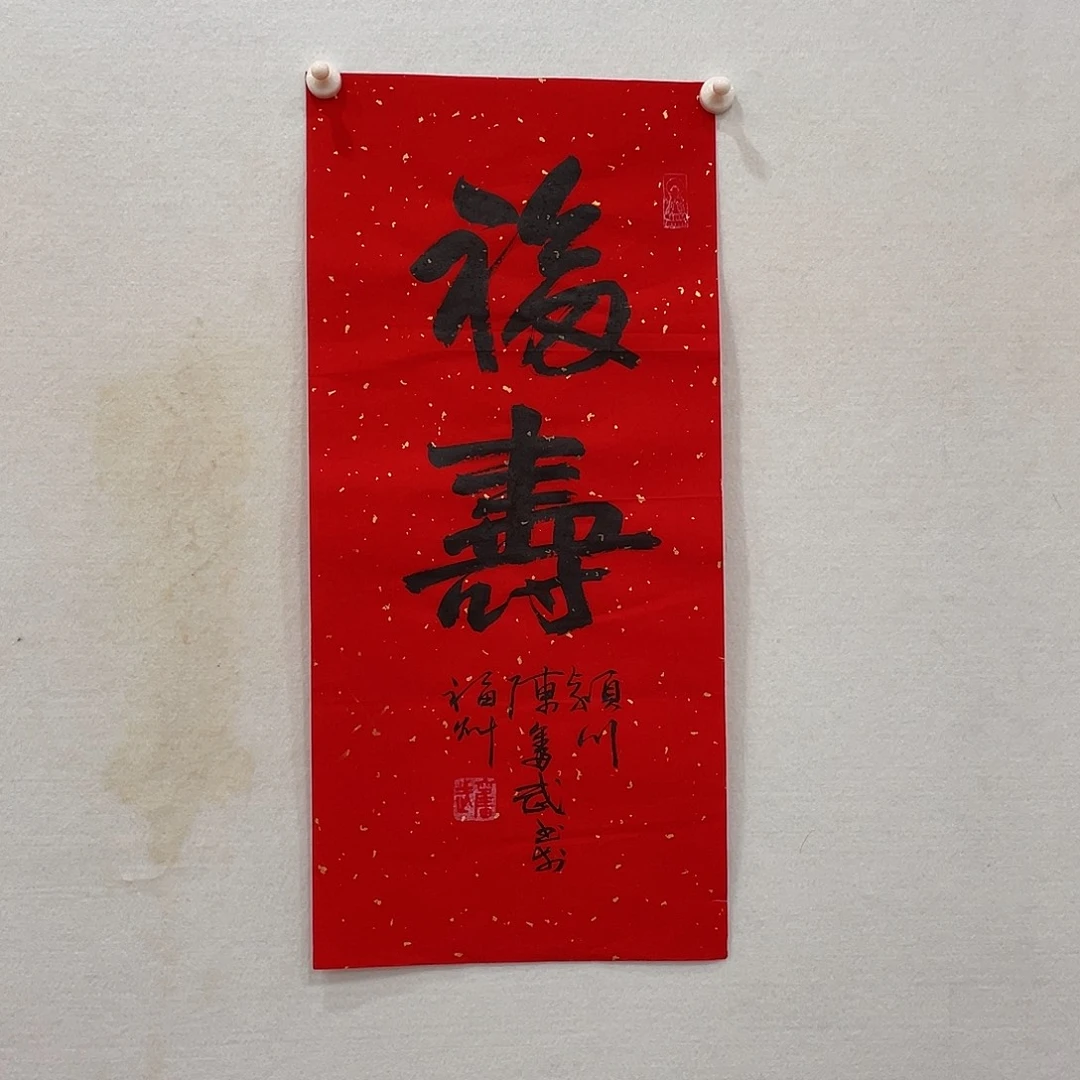 福
壽
潁川
陳奮武書於
福州